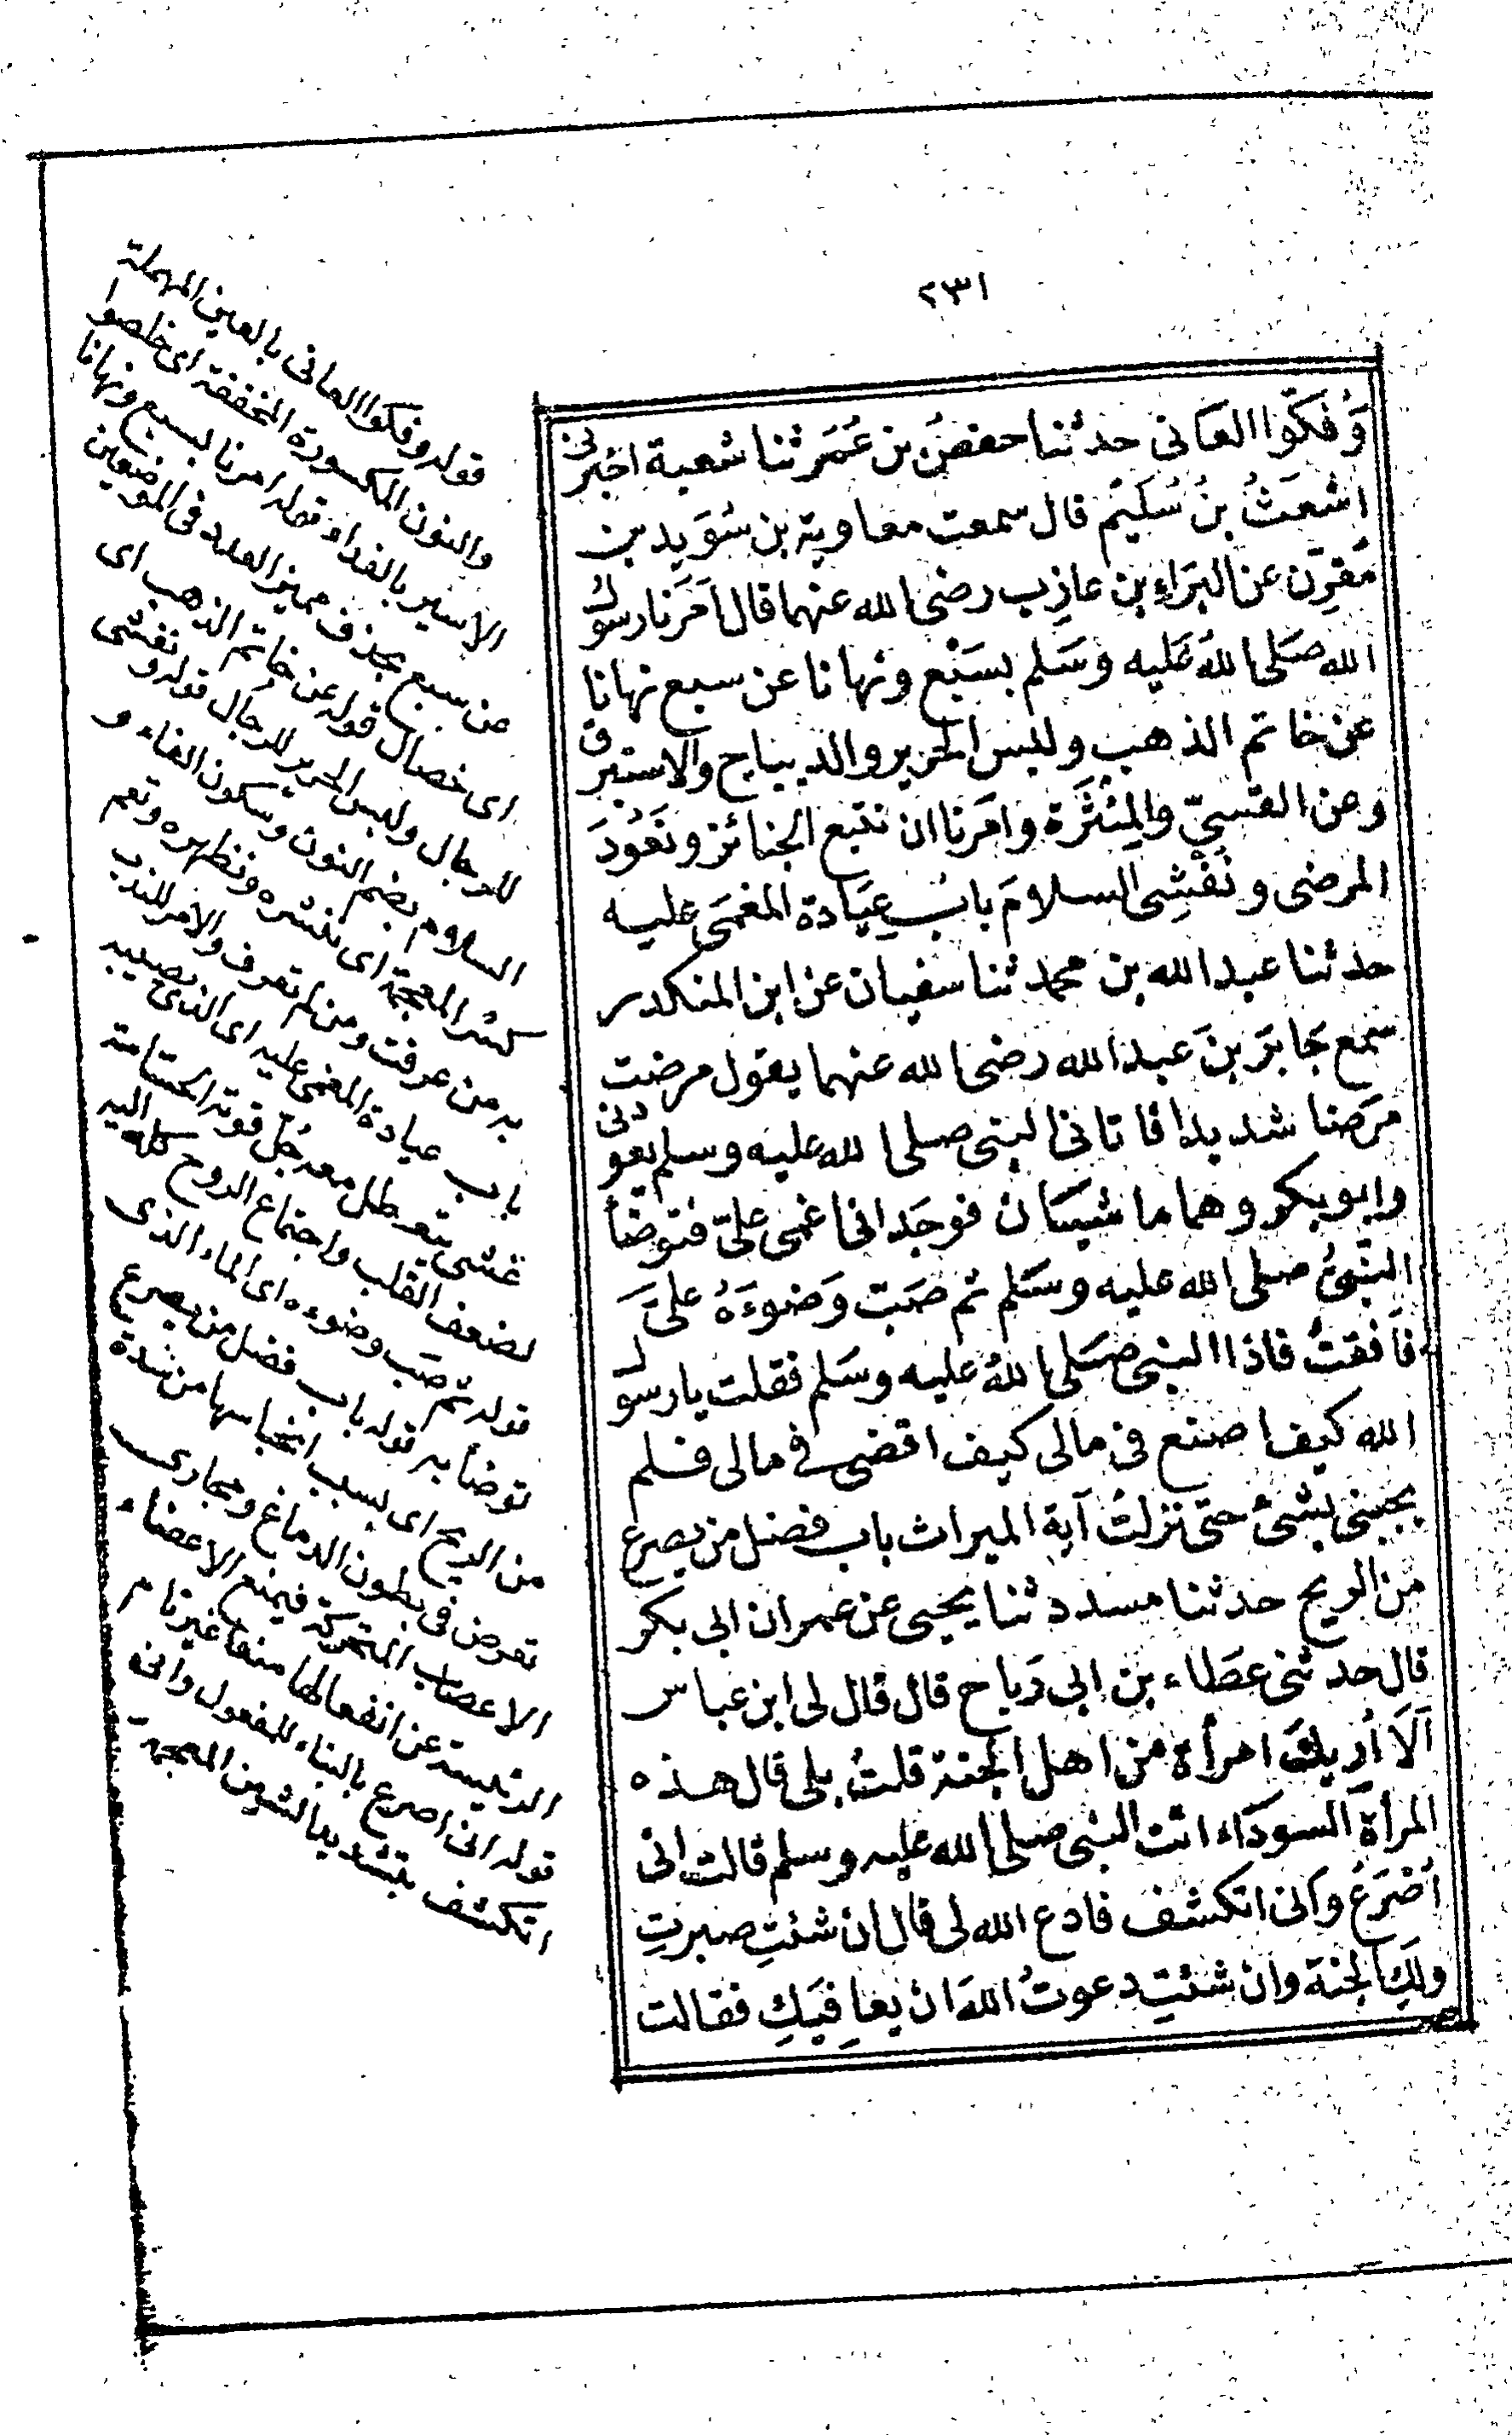 ٢٣١
وَفُكّوا العَانى حدثنا حفصُ بن عُمَرَ ثنا شعبة اخبرنى
اشعَثُ بنُ سُلَيْم قال سمعت معاوية بن سُوَيد بن
مُقَرِّن عن البَرَاءِ بن عازِب رضى الله عنهما قال اَمَرَنا رسولُ
الله صَلى اللهُ عَليه وسَلم بسَبْع ونهانا عن سبع نهانا
عَن خاتم الذهب ولبس الحَرير والديباج والاستبرق
وعن القَسّيّ والمِيْثَرَة وامَرنا ان نتبع الجنائز ونَعُودَ
المرضى ونُفشِى السلامَ بابُ عِيَادة المغمَى عليه
حدثنا عبد الله بن محمد ثنا سفيان عن ابن المنكدر
سمع جَابرَ بنَ عبد الله رضى الله عنهما يقول مرضت
مَرَضا شديدا فاتانى النبى صلى الله عليه وسلم يعودنى
وابو بكر وهما ماشيَان فوجَدانى اغمى علىّ فتوضأ
النّبىُّ صلى الله عليه وسَلم ثم صَبَّ وَضوءَهُ علىَّ
فأفقتُ فاذا النبى صَلى اللهُ عليه وسَلم فقلت يا رسول
الله كيف اصنع فى مالى كيف اقضى فى مالى فلم
يجبنى بشئ حتى نزلتْ آية الميراث باب فضل من يصرع
من الريح حدثنا مسدد ثنا يحيى عن عمران ابى بكر
قال حدثنى عطاء بن ابى رَباح قال قال لى ابن عباس
اَلَا اُريكَ امرأة من اهل الجنة قلتُ بلى قال هذه
المرأة السودَاء اتت النبى صلى الله عليه وسلم قالت انى
اُصْرَعُ وانى اتكشف فادع الله لى قال ان شئتِ صبرتِ
ولكِ الجنة وان شئتِ دعوتُ اللهَ ان يعافيَكِ فقالت
قوله وفكوا العانى بالعين المهملة
والنون المكسورة المخففة اى خلصوا
الاسير بالفداء قوله امرنا بسبع ونهانا
عن سبع بحذف مميز العدد فى الموضعين
اى خصال قوله عن خاتم الذهب اى
للرجال ولبس الحرير للرجال قوله ونفشى
السلام بضم النون وسكون الفاء و
كسْر المعجمة اى ننشره ونظهره ونعم
به من عرفت ومن لم تعرف والامر للندب
باب عيادة المغمى عليه اى الذى يصيبه
غشى يتعطل معه جُل قوته الحساسة
لضعف القلب واجتماع الروح كله اليه
قوله ثم صَب وضوءه اى الماء الذى
توضأ به قوله باب فضل من يصرع
من الريح اى بسبب انحباسها من شدة
تعرض فى بطون الدماغ ومجارى
الاعصاب المتحركة فيمنع الاعضاء
الرئيسة عن انفعالها منعا غير تام
قوله انى اصرع بالبناء للمفعول وانى
اتكشف بتشديد الشين المعجمة